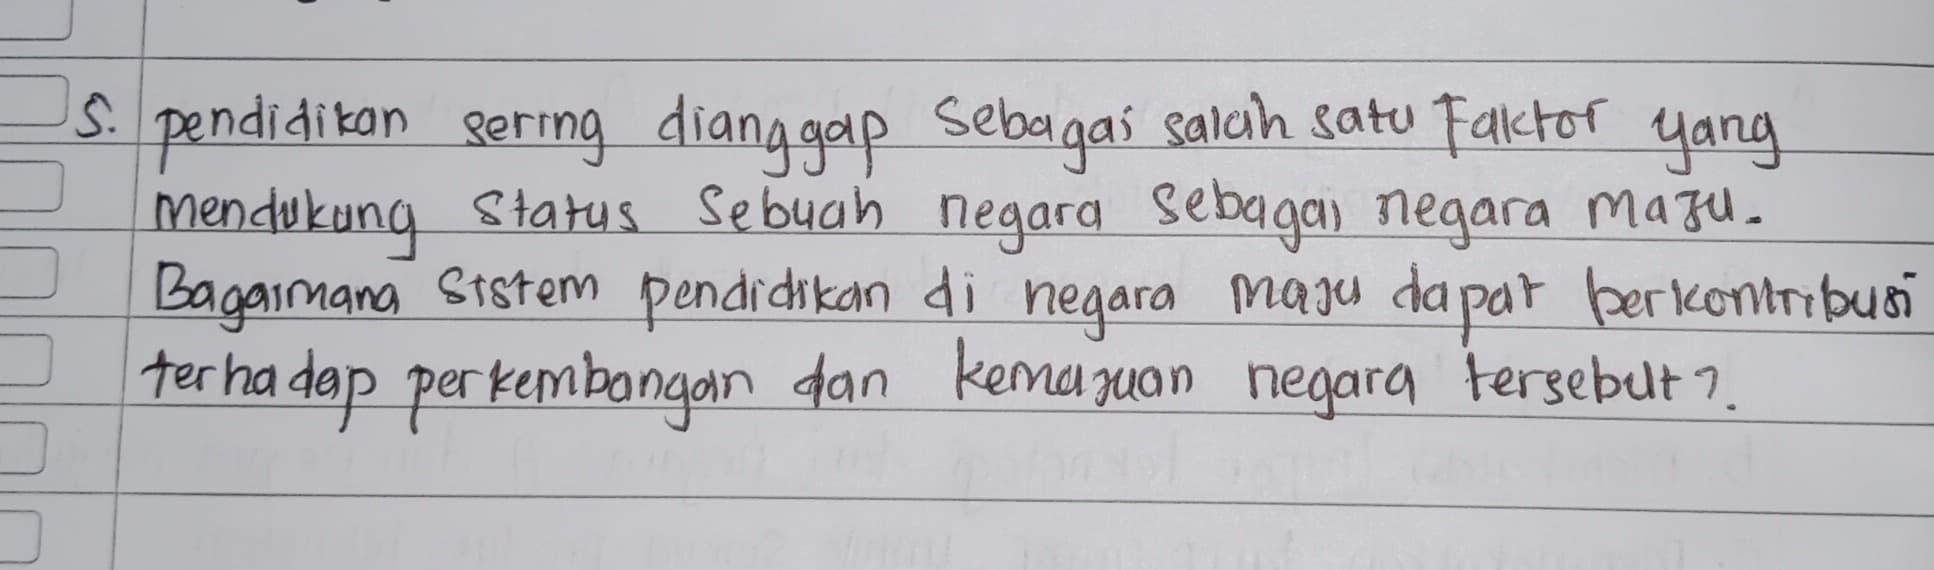 5. pendidikan sering dianggap sebagai salah satu Faktor yang
mendukung status sebuah negara sebagai negara maju.
Bagaimana sistem pendidikan di negara maju dapat berkontribusi
terhadap perkembangan dan kemajuan negara tersebut?